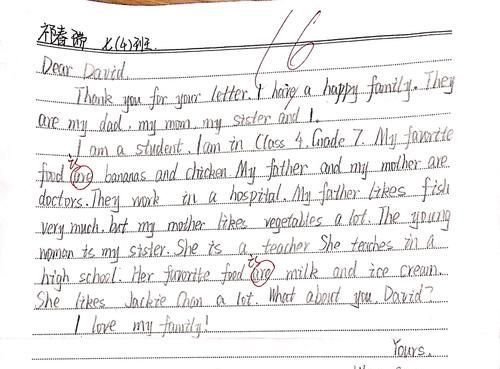 祁春瑞 七(4)班
16
Dear David.
Thank you for your letter. I have a happy family. They
are my dad, my mom, my sister and I.
I am a student. I am in Class 4, Grade 7. My favorite
is
food are bananas and chicken. My father and my mother are
doctors. They work in a hospital. My father likes fish
very much. but my mother likes vegetables a lot. The young
woman is my sister. She is a teacher She teaches in a
is
high school. Her favorite food are milk and ice cream.
She likes Jackie Chan a lot. What about you, David?
I love my family!
Yours.